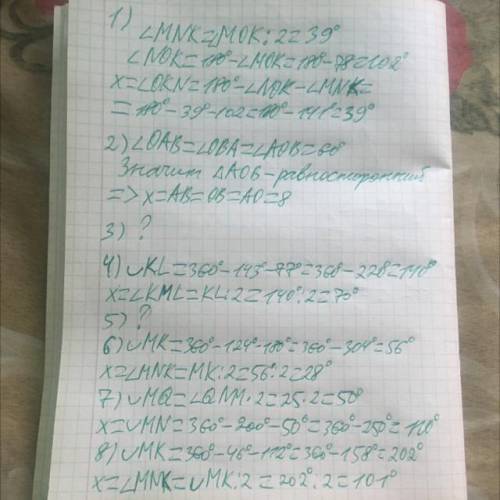 1)
∠MNK=∠MOK:2=39°
∠NOK=180°-∠MOK=180°-78=102°
x=∠OKN=180°-∠NOK-∠MNK=
=180°-39°-102=180°-141°=39°
2) ∠OAB=∠OBA=∠AOB=60°
Значит △AOB-равносторонний
=> x=AB=OB=AO=8
3) ?
4) ∪KL=360°-143°-77°=360°-220°=140°
x=∠KML=KL:2=140°:2=70°
5) ?
6) ∪MK=360°-124°-180°=360°-304°=56°
x=∠MNK=MK:2=56°:2=28°
7) ∪MQ=∠QNM·2=25·2=50°
x=∪MN=360°-200°-50°=360°-250°=110°
8) ∪MK=360°-46°-112°=360°-158°=202°
x=∠MNK=∪MK:2=202°:2=101°